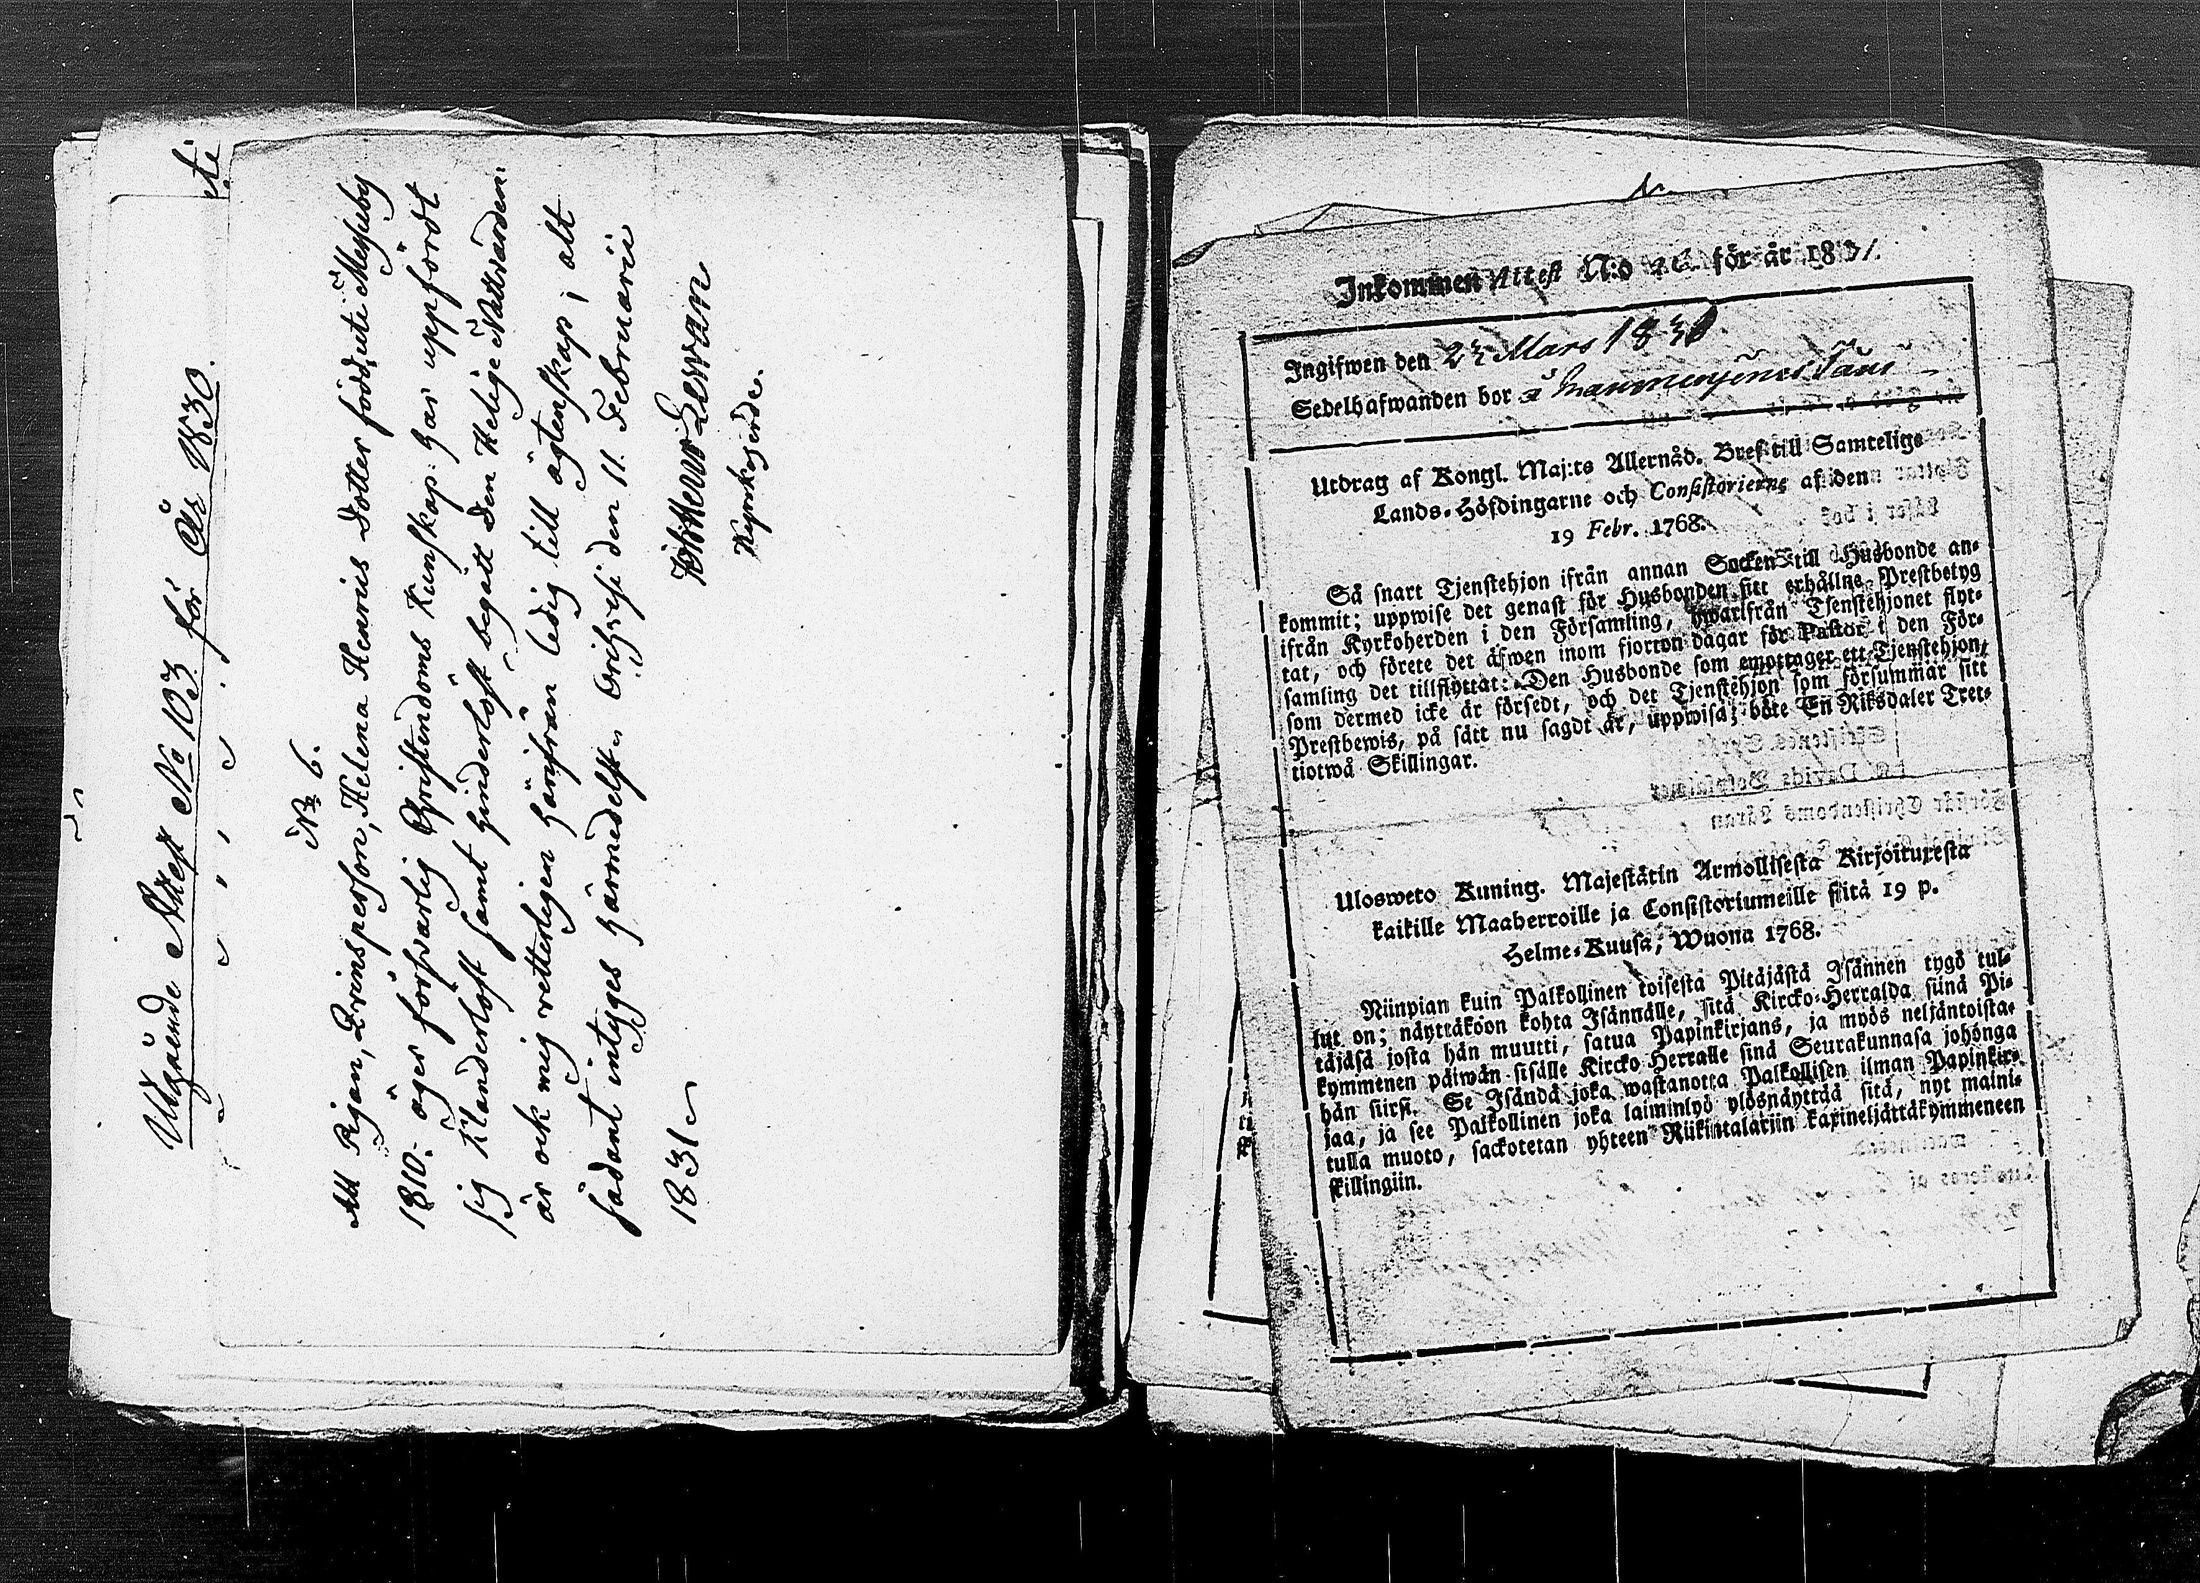 Utgående Attest No 103 för År 1830.
No 6.
Att Pigan, Qvinsperson, Helena Henrics dotter född uti Messuby
1810. äger försvarlig Christendoms Kunskap: har uppfördt
sig Klanderlöst samt hinderlöst begått den Helige Nattvarden:
är ock mig vetterligen härifrån ledig till ägtenskap; alt
sådant intyges härmedelst. Orihvesi den 11. Februarii
1831
Kyrkoherde.
Inkommen Attest N:o för år 1831.
Ingifwen den Mars 183
Sedelhafwanden bor å
Utdrag af Kongl. Maj:ts Allernåd. Bref till Samtelige
Lands-Höfdingarne och Consistorierne af den
19 Febr. 1768.
Så snart Tjenstehjon ifrån annan Socken till Husbonde an-
kommit; uppwise det genast för Husbonden sitt erhållne Prestbetyg
ifrån Kyrkoherden i den Församling, hwarifrån Tjenstehjonet flyt-
tat, och förete det äfwen inom fjorton dagar för Pastor i den För-
samling det tillflyttat: Den Husbonde som emottager ett Tjenstehjon,
som dermed icke är försedt, och det Tjenstehjon som försummar sitt
Prestbewis, på sätt nu sagdt är, uppwisa; böte En Riksdaler Tret-
tiotwå Skillingar.
Ulosweto Kuning. Majestätin Armollisesta Kirjoituxesta
kaikille Maaherroille ja Consistoriumeille siitä 19 p.
Helme-Kuusa, Wuona 1768.
Niinpian kuin Palkollinen toisesta Pitäjästä Isännen tygö tul-
lut on; näyttäköön kohta Isännälle, sitä Kircko-Herralda siinä Pi-
täjäsä josta hän muutti, saatua Papinkirjans, ja myös neljäntoista-
kymmenen päiwän sisälle Kircko Herralle siinä Seurakunnasa johonga
hän siirsi. Se Isändä joka wastanotta Palkollisen ilman Papinkir-
jaa, ja see Palkollinen joka laiminlyö ylösnäyttää sitä, nyt maini-
tulla muoto, sackotetan yhteen Riikintalariin kaxineljättäkymmeneen
skillingiin.